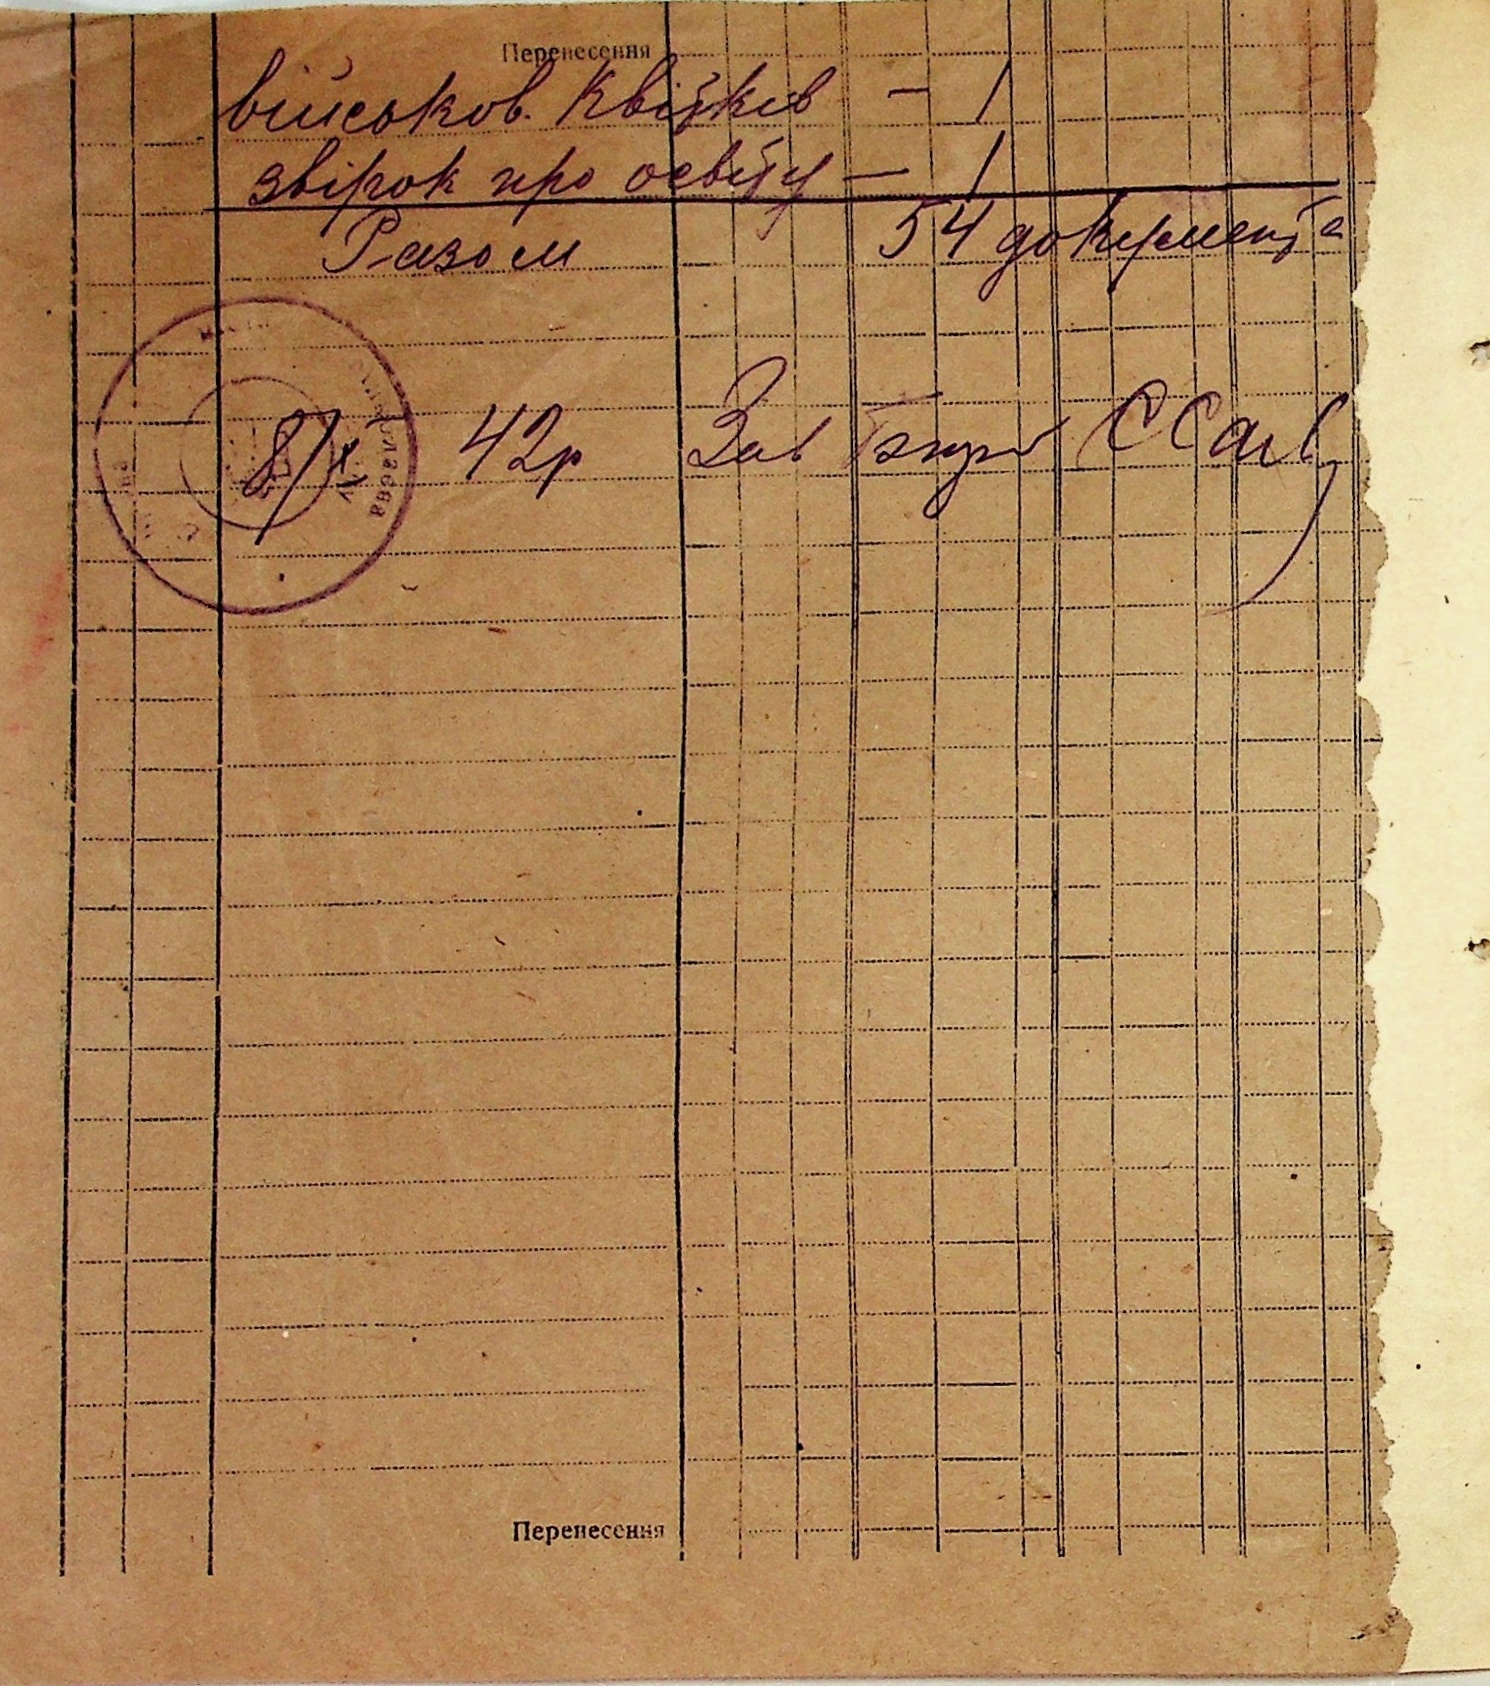 Перенесення
військов. квітків — 1
звірок про освіту — 1
Разом 54 документа
8/X 42р Зав Бюро
Перенесення